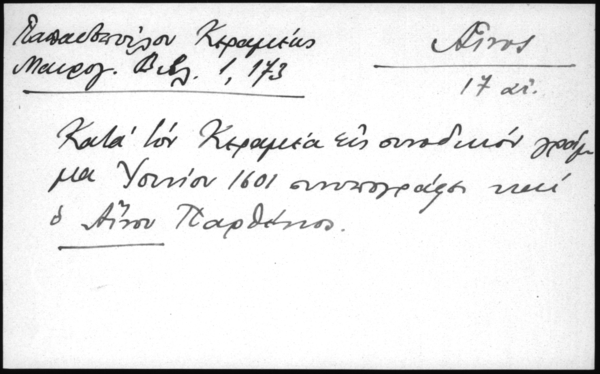 Παπαδοπούλου Κεραμέως
Μαυρογ. Βιβλ. 1, 173
Αἶνος
17 αἰ.
Κατά τόν Κεραμέα εἰς συνοδικόν γράμ
μα Ἰουνίου 1601 συνυπογράφει καί
ὁ Αἴνου Παρθένιος.